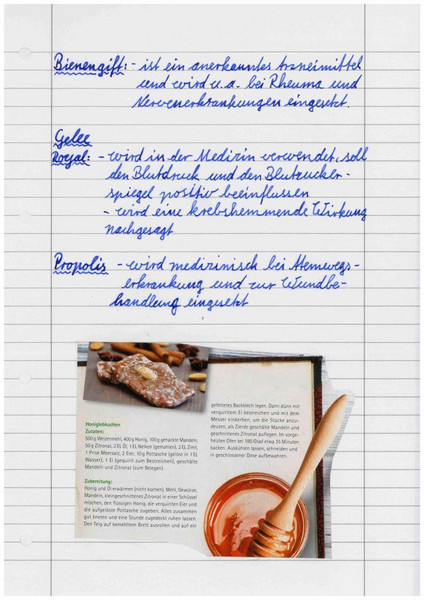 Bienengift: - ist ein anerkanntes Arzneimittel
und wird u. a. bei Rheuma und
Nervenerkrankungen eingesetzt.
Gelee
Royal: - wird in der Medizin verwendet, soll
den Blutdruck und den Blutzucker-
spiegel positiv beeinflussen
- wird eine krebshemmende Wirkung
nachgesagt
Propolis - wird medizinisch bei Atemwegs-
erkrankung und zur Wundbe-
handlung eingesetzt
Honiglebkuchen
Zutaten:
500 g Weizenmehl, 400 g Honig, 100 g gehackte Mandeln,
50 g Zitronat, 2 EL Öl, 1 EL Nelken (gemahlen), 2 EL Zimt,
1 Prise Meersalz, 2 Eier, 10 g Pottasche (gelöst in 1 EL
Wasser), 1 Ei (gequirlt zum Bestreichen), geschälte
Mandeln und Zitronat (zum Belegen)
Zubereitung:
Honig und Öl erwärmen (nicht kochen). Mehl, Gewürze,
Mandeln, kleingeschnittenes Zitronat in einer Schüssel
mischen, den flüssigen Honig, die verquirlten Eier und
die aufgelöste Pottasche zugeben. Alles zusammen
gut kneten und eine Stunde zugedeckt ruhen lassen.
Den Teig auf bemehltem Brett ausrollen und auf ein
gefettetes Backblech legen. Dann dünn mit
verquirltem Ei bestreichen und mit dem
Messer einkerben, um die Stücke anzu-
deuten, als Zierde geschälte Mandeln und
geschnittenes Zitronat auflegen. Im vorge-
heizten Ofen bei 180 Grad etwa 35 Minuten
backen. Auskühlen lassen, schneiden und
in geschlossener Dose aufbewahren.